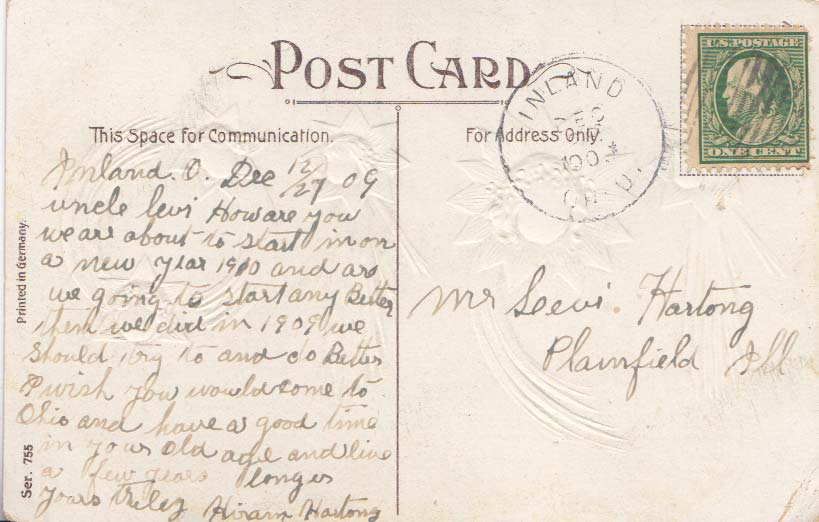 POST CARD
This Space for Communication.
For Address Only.
U.S. POSTAGE
ONE CENT
INLAND
DEC
190
OHIO.
Inland. O. Dec 12/27 09
uncle levi How are you
we are about to start in on
a new year 1910 and are
we going to start any Better
then we did in 1909 we
should try to and do Better
I wish you would come to
Ohio and have a good time
in your old age and live
a few years longer
yours
Hiram Hartong
Mr Leevi. Hartong
Plainfield Ill
Printed in Germany.
Ser. 755